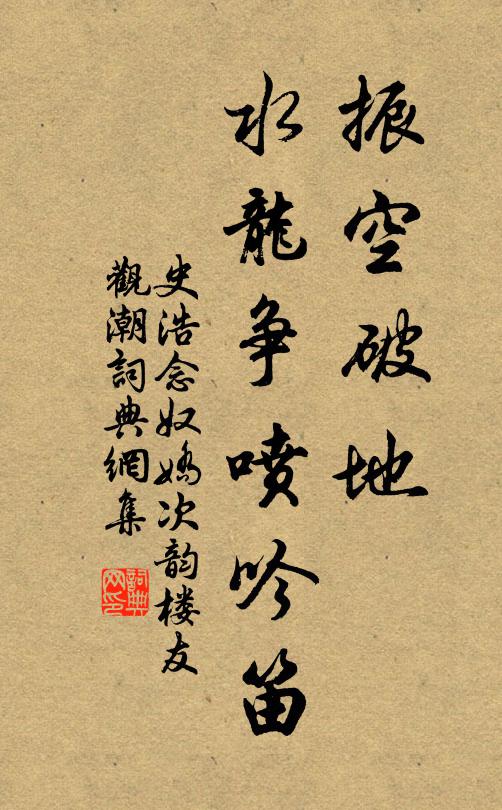 振空破地
水龍争噴吟笛
史浩念奴嬌次韵楼友
觀潮詞典網集
詞典网印